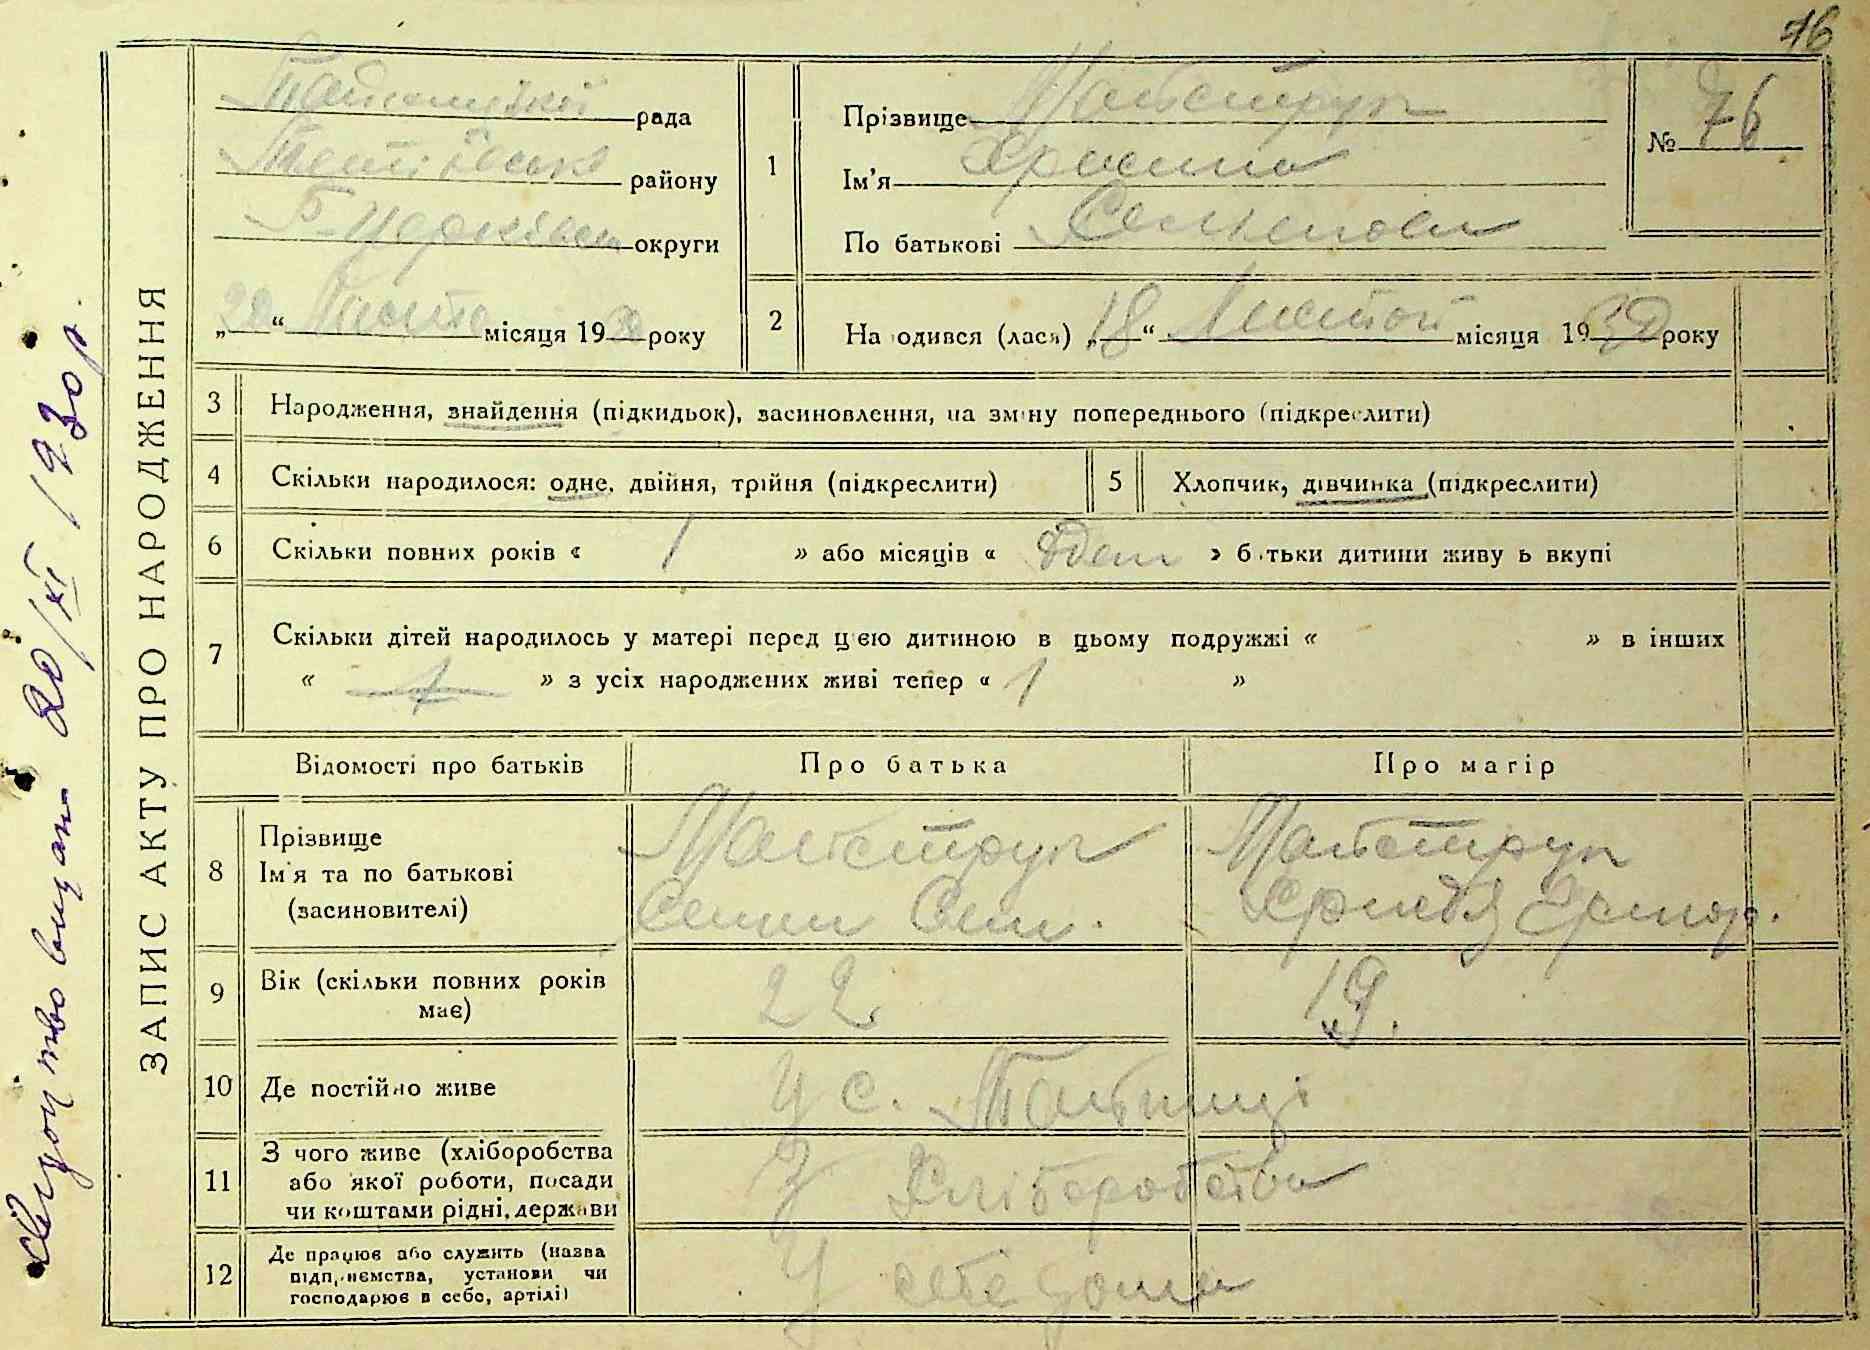 76
ЗАПИС АКТУ ПРО НАРОДЖЕННЯ
рада
району
Б-Церківськ округи
„20“ Листо місяця 1930 року
1
Прізвище Майструк
Ім'я
По батькові Семенова
№ 76
2
На одився (лася) „18“ Листопой місяця 1930 року
3
Народження, знайдення (підкидьок), засиновлення, на зміну попереднього (підкреслити)
4
Скільки народилося: одне, двійня, трійня (підкреслити)
5
Хлопчик, дівчинка (підкреслити)
6
Скільки повних років « 1 » або місяців « один » б тьки дитини живу ь вкупі
7
Скільки дітей народилось у матері перед цією дитиною в цьому подружжі « » в інших
« 1 » з усіх народжених живі тепер « 1 »
Відомості про батьків
Про батька
Про матір
8
Прізвище
Ім'я та по батькові
(засиновителі)
Майструк
Семен Сем.
Майструк
9
Вік (скільки повних років
має)
22
19.
10
Де постійно живе
У с.
11
З чого живе (хліборобства
або якої роботи, посади
чи коштами рідні, держави
З Хліборобства
12
Де працює або служить (назва
підприємства, установи чи
господарює в себе, артілі)
У себе дома
20/XI 1930 р.